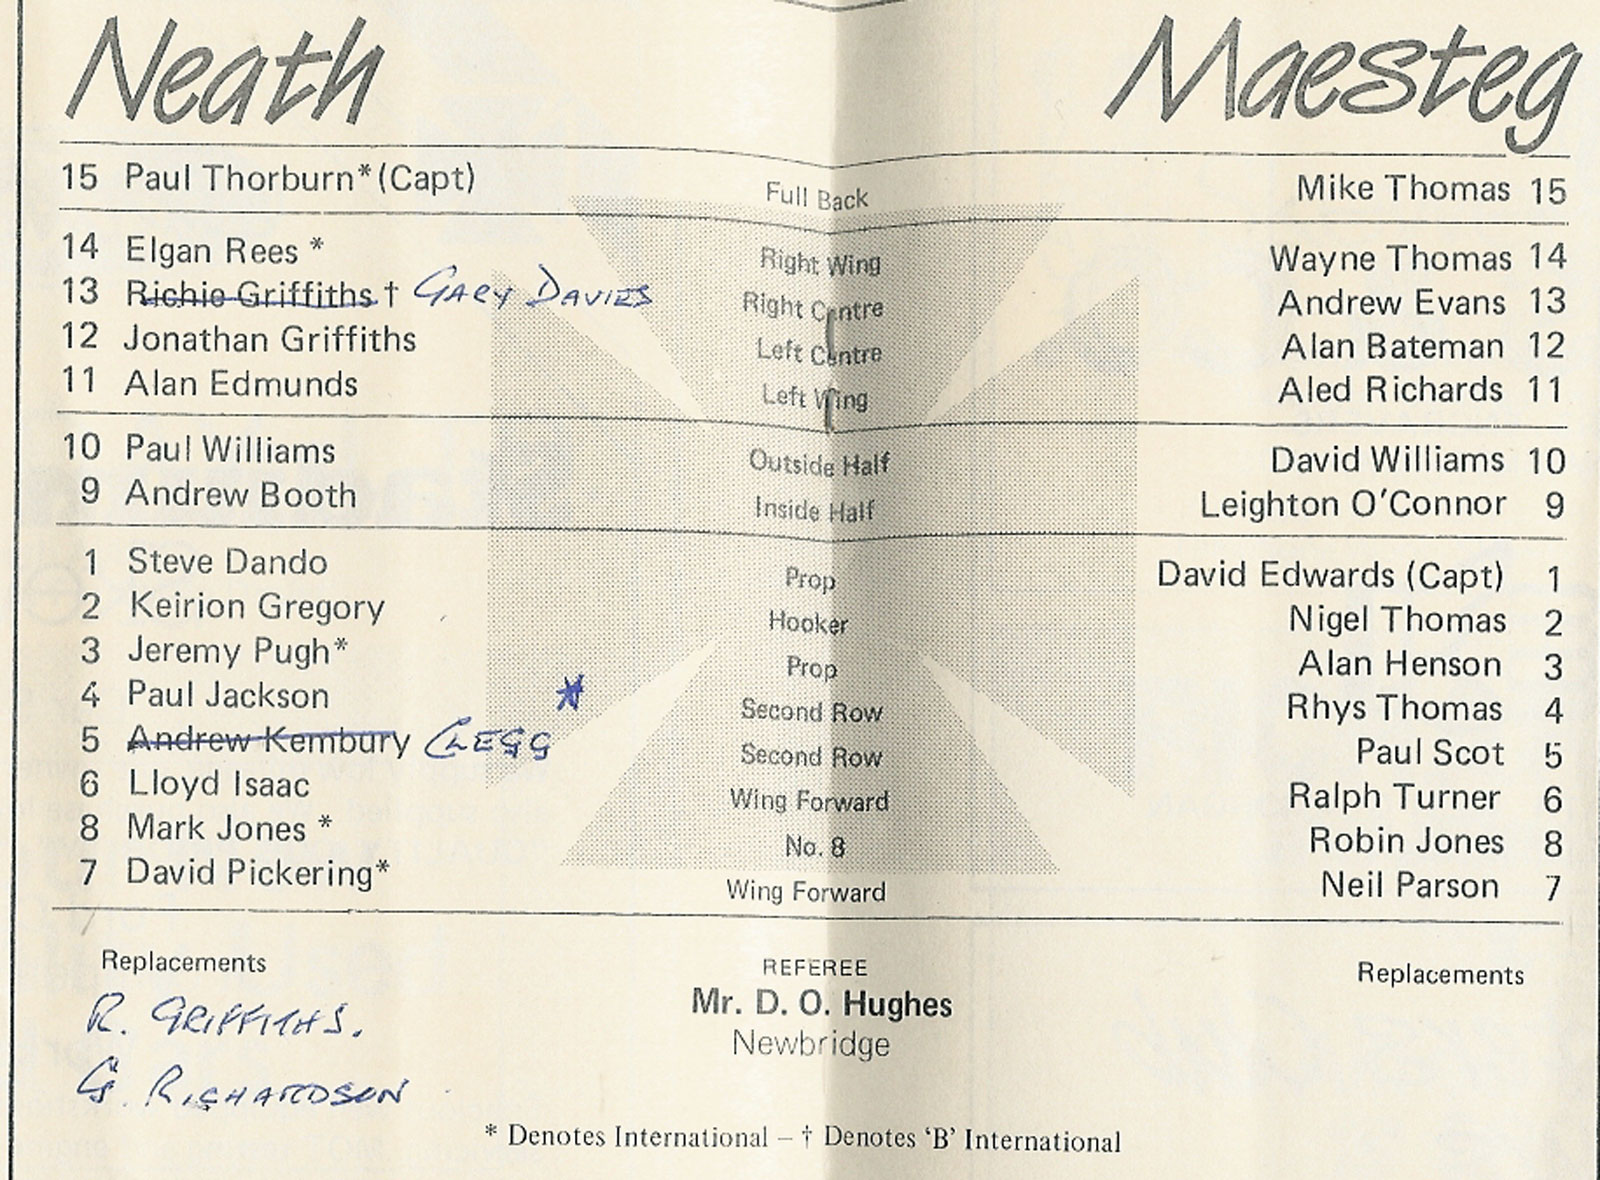 Neath Maesteg
15 Paul Thorburn* (Capt) Full Back Mike Thomas 15
14 Elgan Rees * Right Wing Wayne Thomas 14
13 Richie Griffiths † GARY DAVIES Right Centre Andrew Evans 13
12 Jonathan Griffiths Left Centre Alan Bateman 12
11 Alan Edmunds Left Wing Aled Richards 11
10 Paul Williams Outside Half David Williams 10
9 Andrew Booth Inside Half Leighton O'Connor 9
1 Steve Dando Prop David Edwards (Capt) 1
2 Keirion Gregory Hooker Nigel Thomas 2
3 Jeremy Pugh* Prop Alan Henson 3
4 Paul Jackson Second Row Rhys Thomas 4
5 Andrew Kembury CLEGG * Second Row Paul Scot 5
6 Lloyd Isaac Wing Forward Ralph Turner 6
8 Mark Jones * No. 8 Robin Jones 8
7 David Pickering* Wing Forward Neil Parson 7
Replacements REFEREE Replacements
R. GRIFFITHS. Mr. D. O. Hughes
Newbridge
G. RICHARDSON
* Denotes International – † Denotes 'B' International